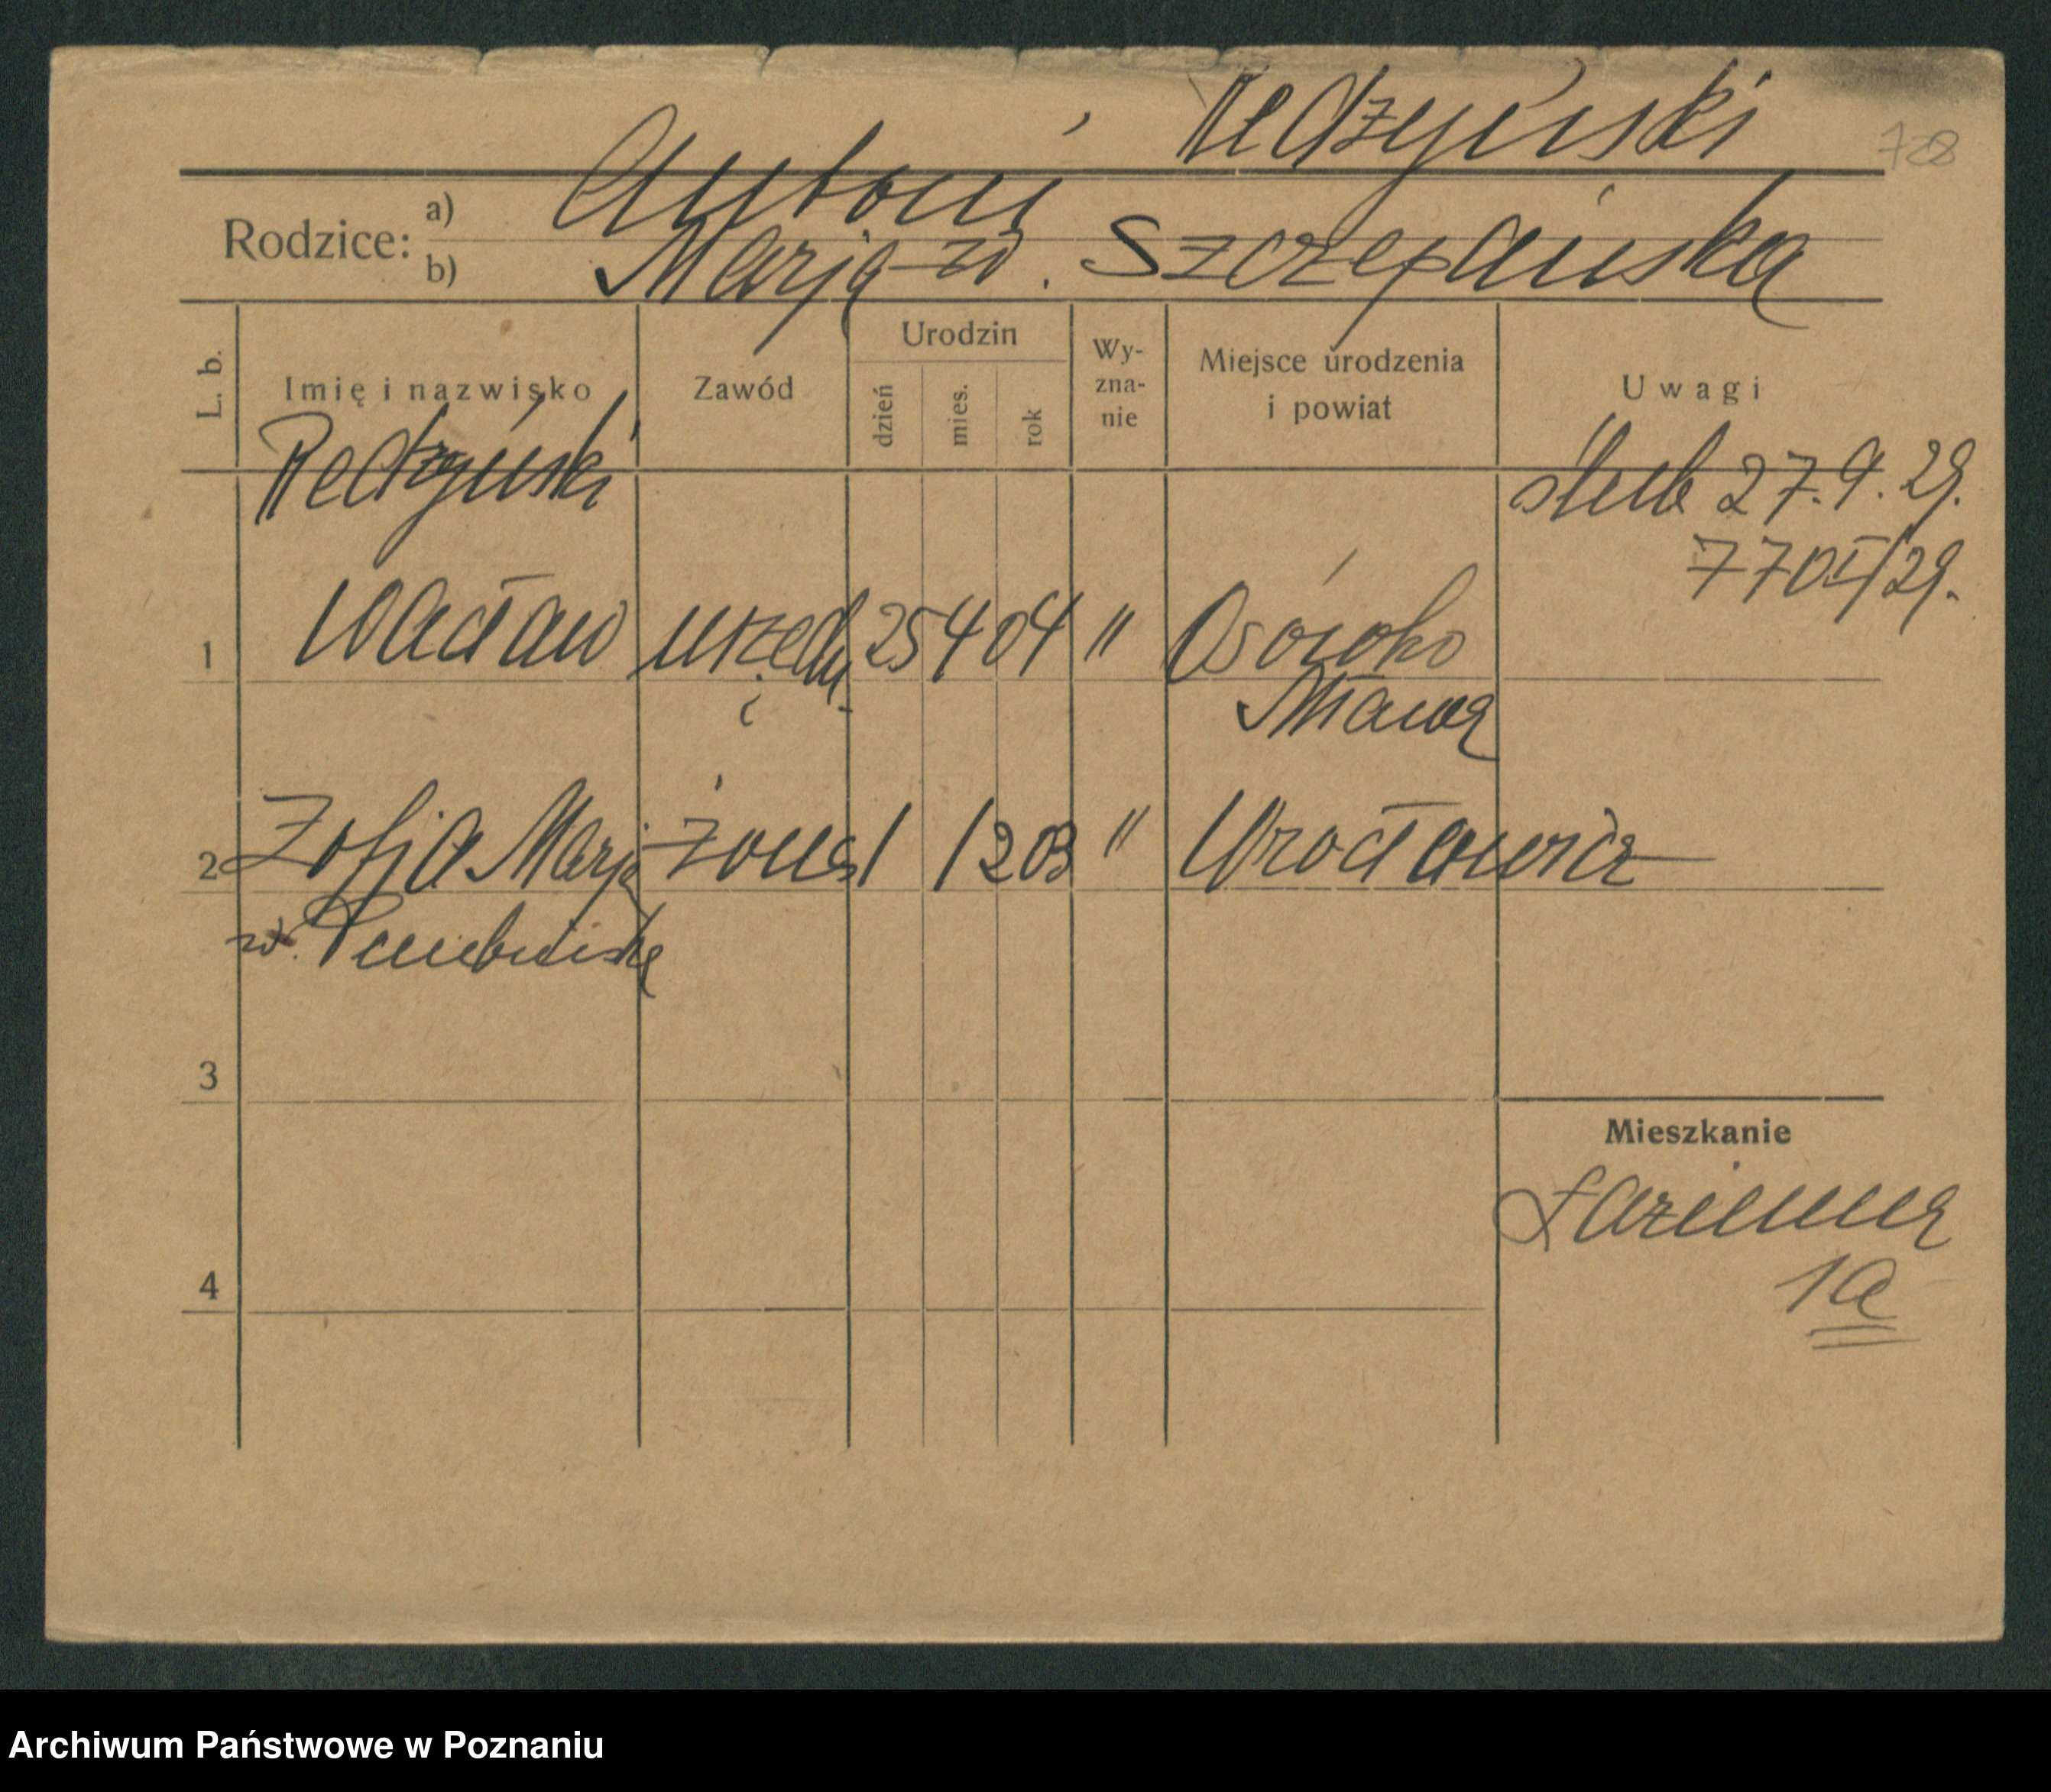 Redzyński
728
Rodzice: a) Antoni
b) Marja z d. Szczepańska
L. b. Imię i nazwisko Zawód Urodzin dzień mies. rok Wy-zna-nie Miejsce urodzenia i powiat Uwagi
Redzyński ślub 27.9.29.
770I/29.
1 Wacław urzędn. 25 4 04 " Osówko
Mława
2 Zofja Marja żona 1 12 03 " Wrocławicz
zd.
3
Mieszkanie
Łazienna
4 1a
Archiwum Państwowe w Poznaniu